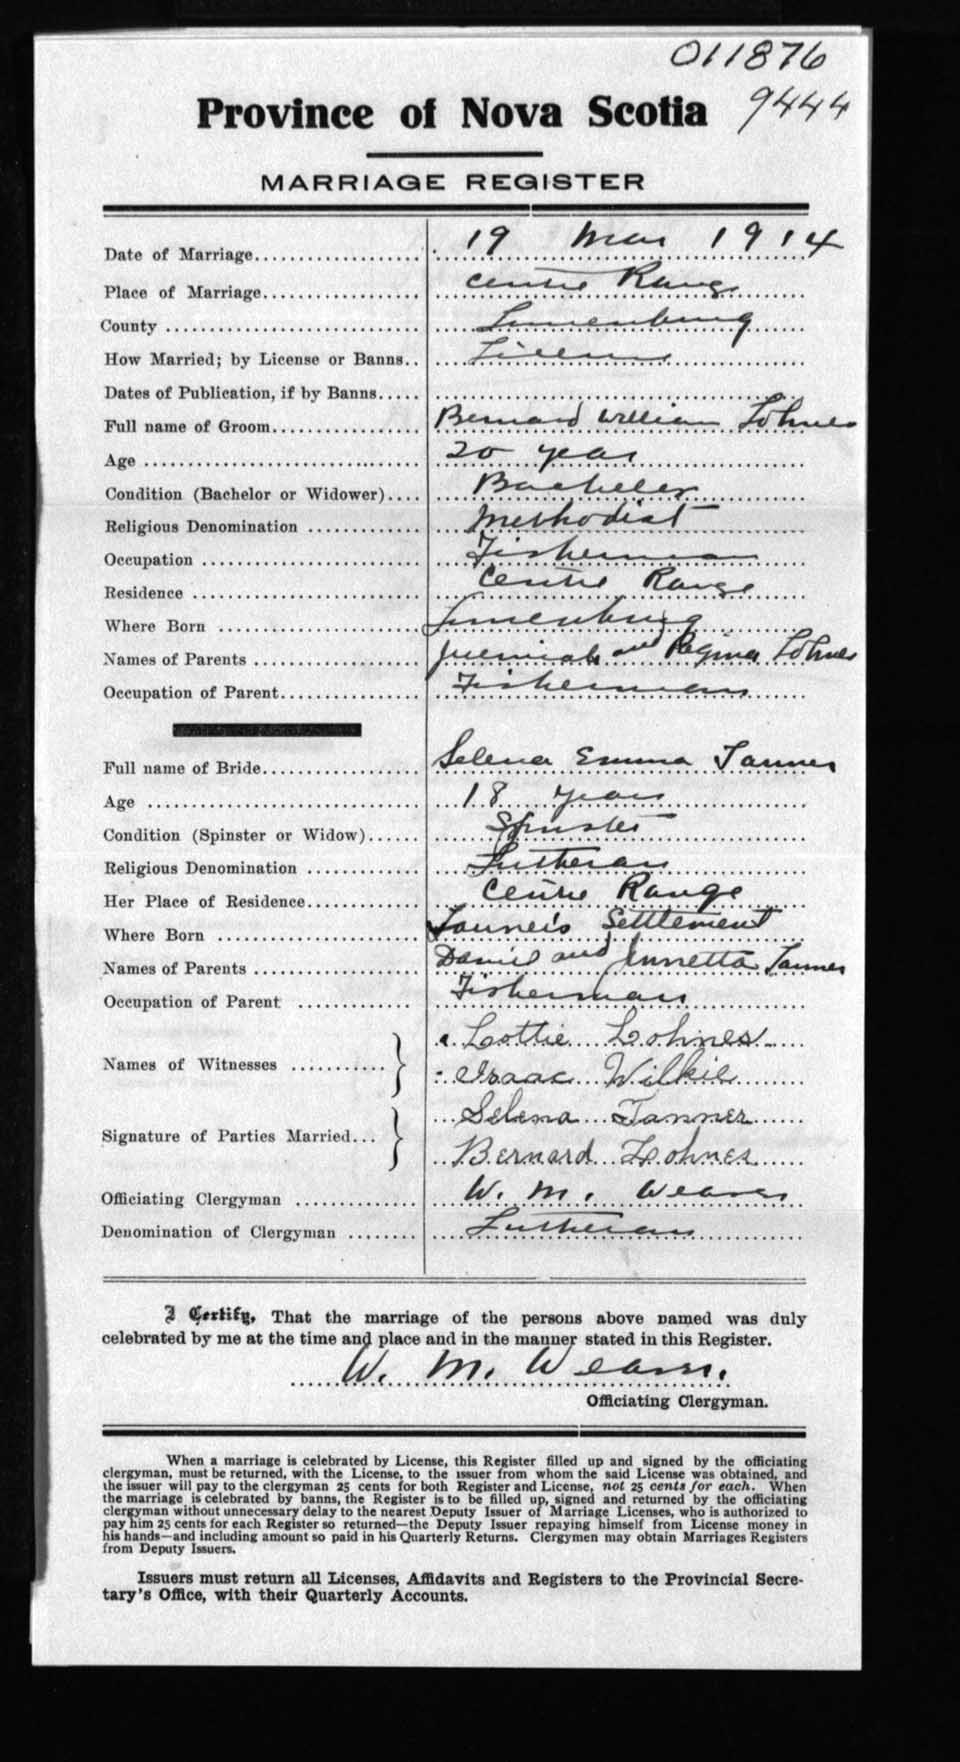 011876
9444
Province of Nova Scotia
MARRIAGE REGISTER
Date of Marriage 19 Mar 1914
Place of Marriage Centre Range
County Lunenburg
How Married; by License or Banns License
Dates of Publication, if by Banns
Full name of Groom Bernard William Lohnes
Age 20 years
Condition (Bachelor or Widower) Bachelor
Religious Denomination Methodist
Occupation Fisherman
Residence Centre Range
Where Born Lunenburg
Names of Parents Jeremiah and Regina Lohnes
Occupation of Parent Fisherman
Full name of Bride Selena Emma Tanner
Age 18 years
Condition (Spinster or Widow) Spinster
Religious Denomination Lutheran
Her Place of Residence Centre Range
Where Born Tanner's Settlement
Names of Parents Daniel and Annetta Tanner
Occupation of Parent Fisherman
Names of Witnesses Lottie Lohnes
Isaac Wilkie
Signature of Parties Married Selena Tanner
Bernard Lohnes
Officiating Clergyman W. M. Weaver
Denomination of Clergyman Lutheran
I Certify, That the marriage of the persons above named was duly
celebrated by me at the time and place and in the manner stated in this Register.
W. M. Weaver.
Officiating Clergyman.
When a marriage is celebrated by License, this Register filled up and signed by the officiating
clergyman, must be returned, with the License, to the issuer from whom the said License was obtained, and
the issuer will pay to the clergyman 25 cents for both Register and License, not 25 cents for each. When
the marriage is celebrated by banns, the Register is to be filled up, signed and returned by the officiating
clergyman without unnecessary delay to the nearest Deputy Issuer of Marriage Licenses, who is authorized to
pay him 25 cents for each Register so returned—the Deputy Issuer repaying himself from License money in
his hands—and including amount so paid in his Quarterly Returns. Clergymen may obtain Marriages Registers
from Deputy Issuers.
Issuers must return all Licenses, Affidavits and Registers to the Provincial Secre-
tary's Office, with their Quarterly Accounts.